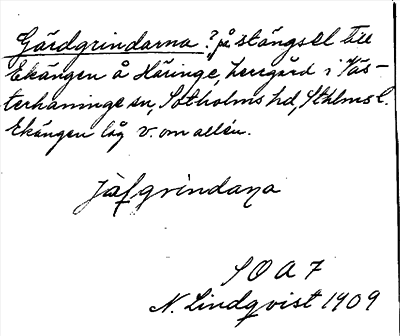 Gärdgrindarna? på stängsel till
Ekängen å Häringe, herrgård i Väs-
terhaninge sn, Sotholms hd, Sthlms l.
Ekängen låg v. om allén.
jäfgrindaṇa
SOA 7
N. Lindqvist 1909